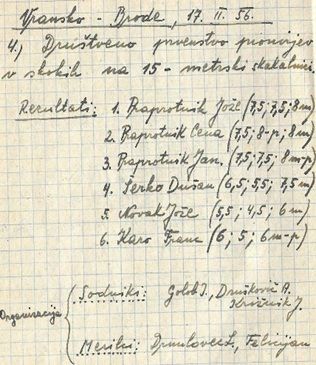 Vransko - Brode, 17. II. 56.
4.) Društveno prvenstvo pionirjev
v skokih na 15-metrski skakalnici.
Rezultati: 1. Raprotnik Jože (7,5; 7,5; 8 m)
2. Raprotnik Cena (7,5; 8-p; 8 m)
3. Raprotnik Jan. (7,5; 7,5; 8 m-p)
4. Serko Dušan (6,5; 5,5; 7,5 m)
5. Novak Jože (5,5; 4,5; 6 m)
6. Karo Franc (6; 5; 6 m-p)
Organizacija
Sodniki: Golob I., Druškovič A.
Križnik J.
Merilci: Felicijan